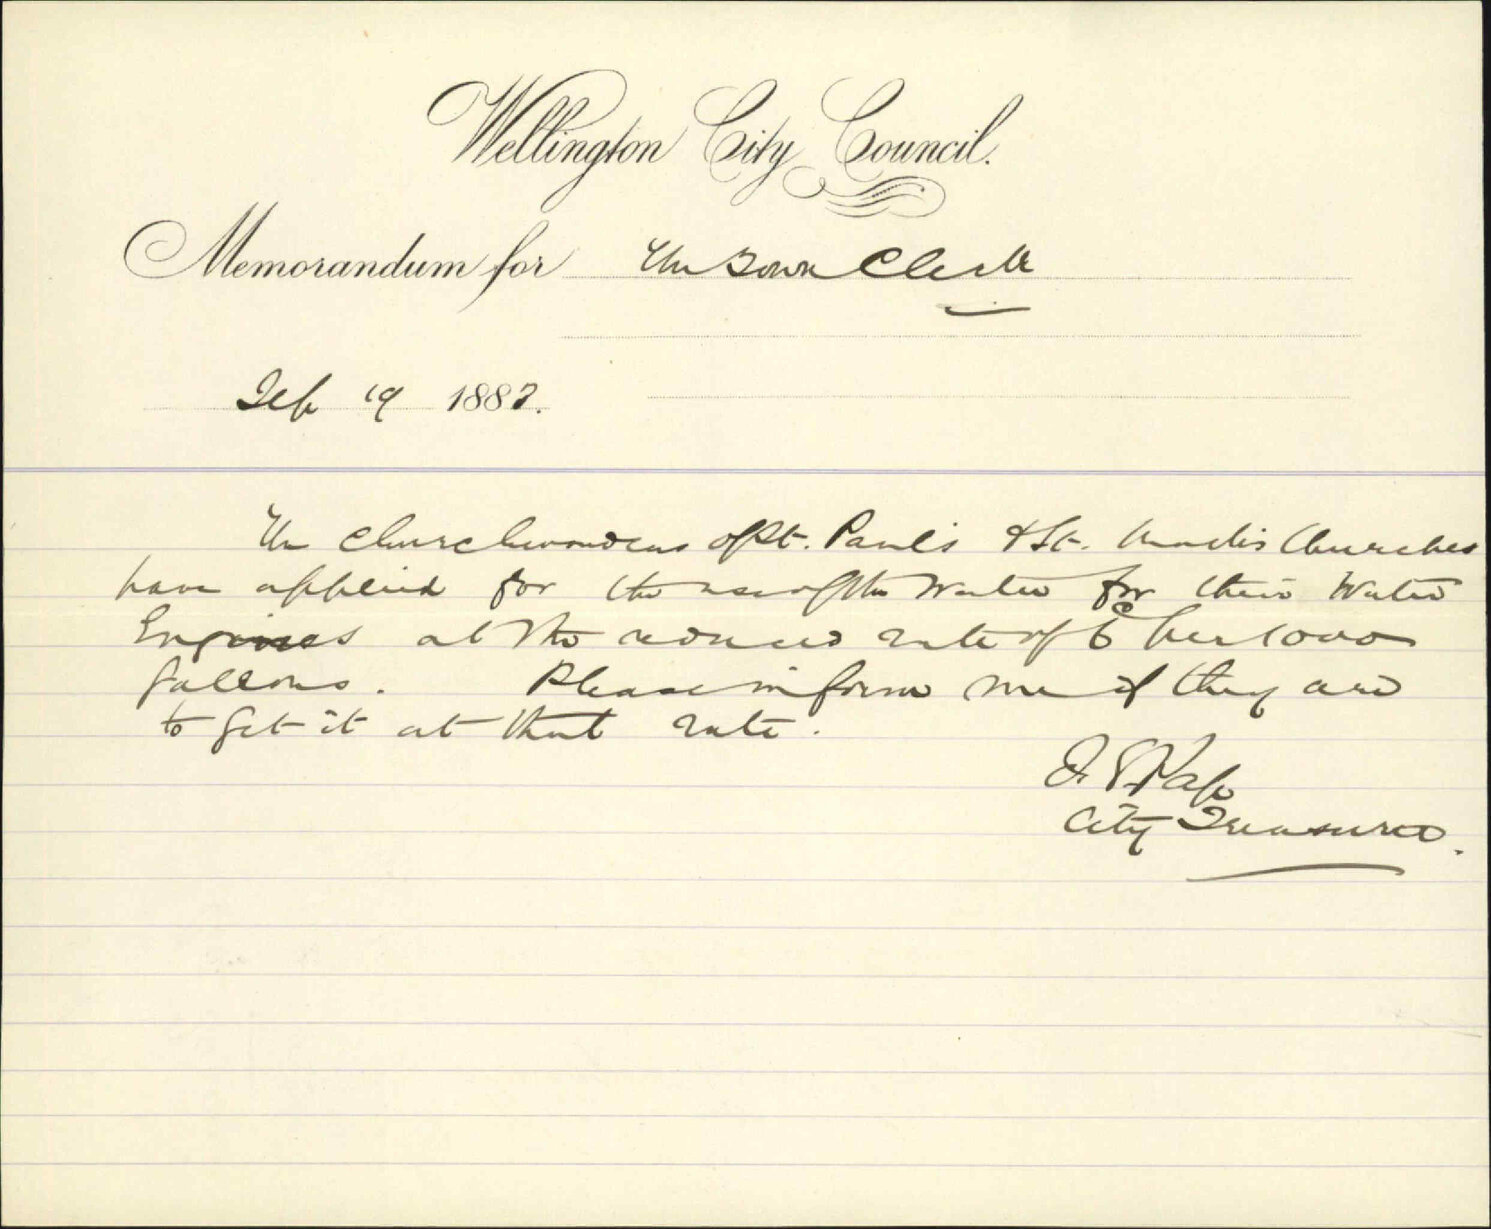 Wellington City Council.
Memorandum for The Town Clerk
Feb 19 1883.
The Churchwardens of St. Paul's & St. Mark's Churches
have applied for the use of the Water for their Water
Engines at the reduced rate of 6d per 1000
gallons. Please inform me if they are
to get it at that rate.
City Treasurer.